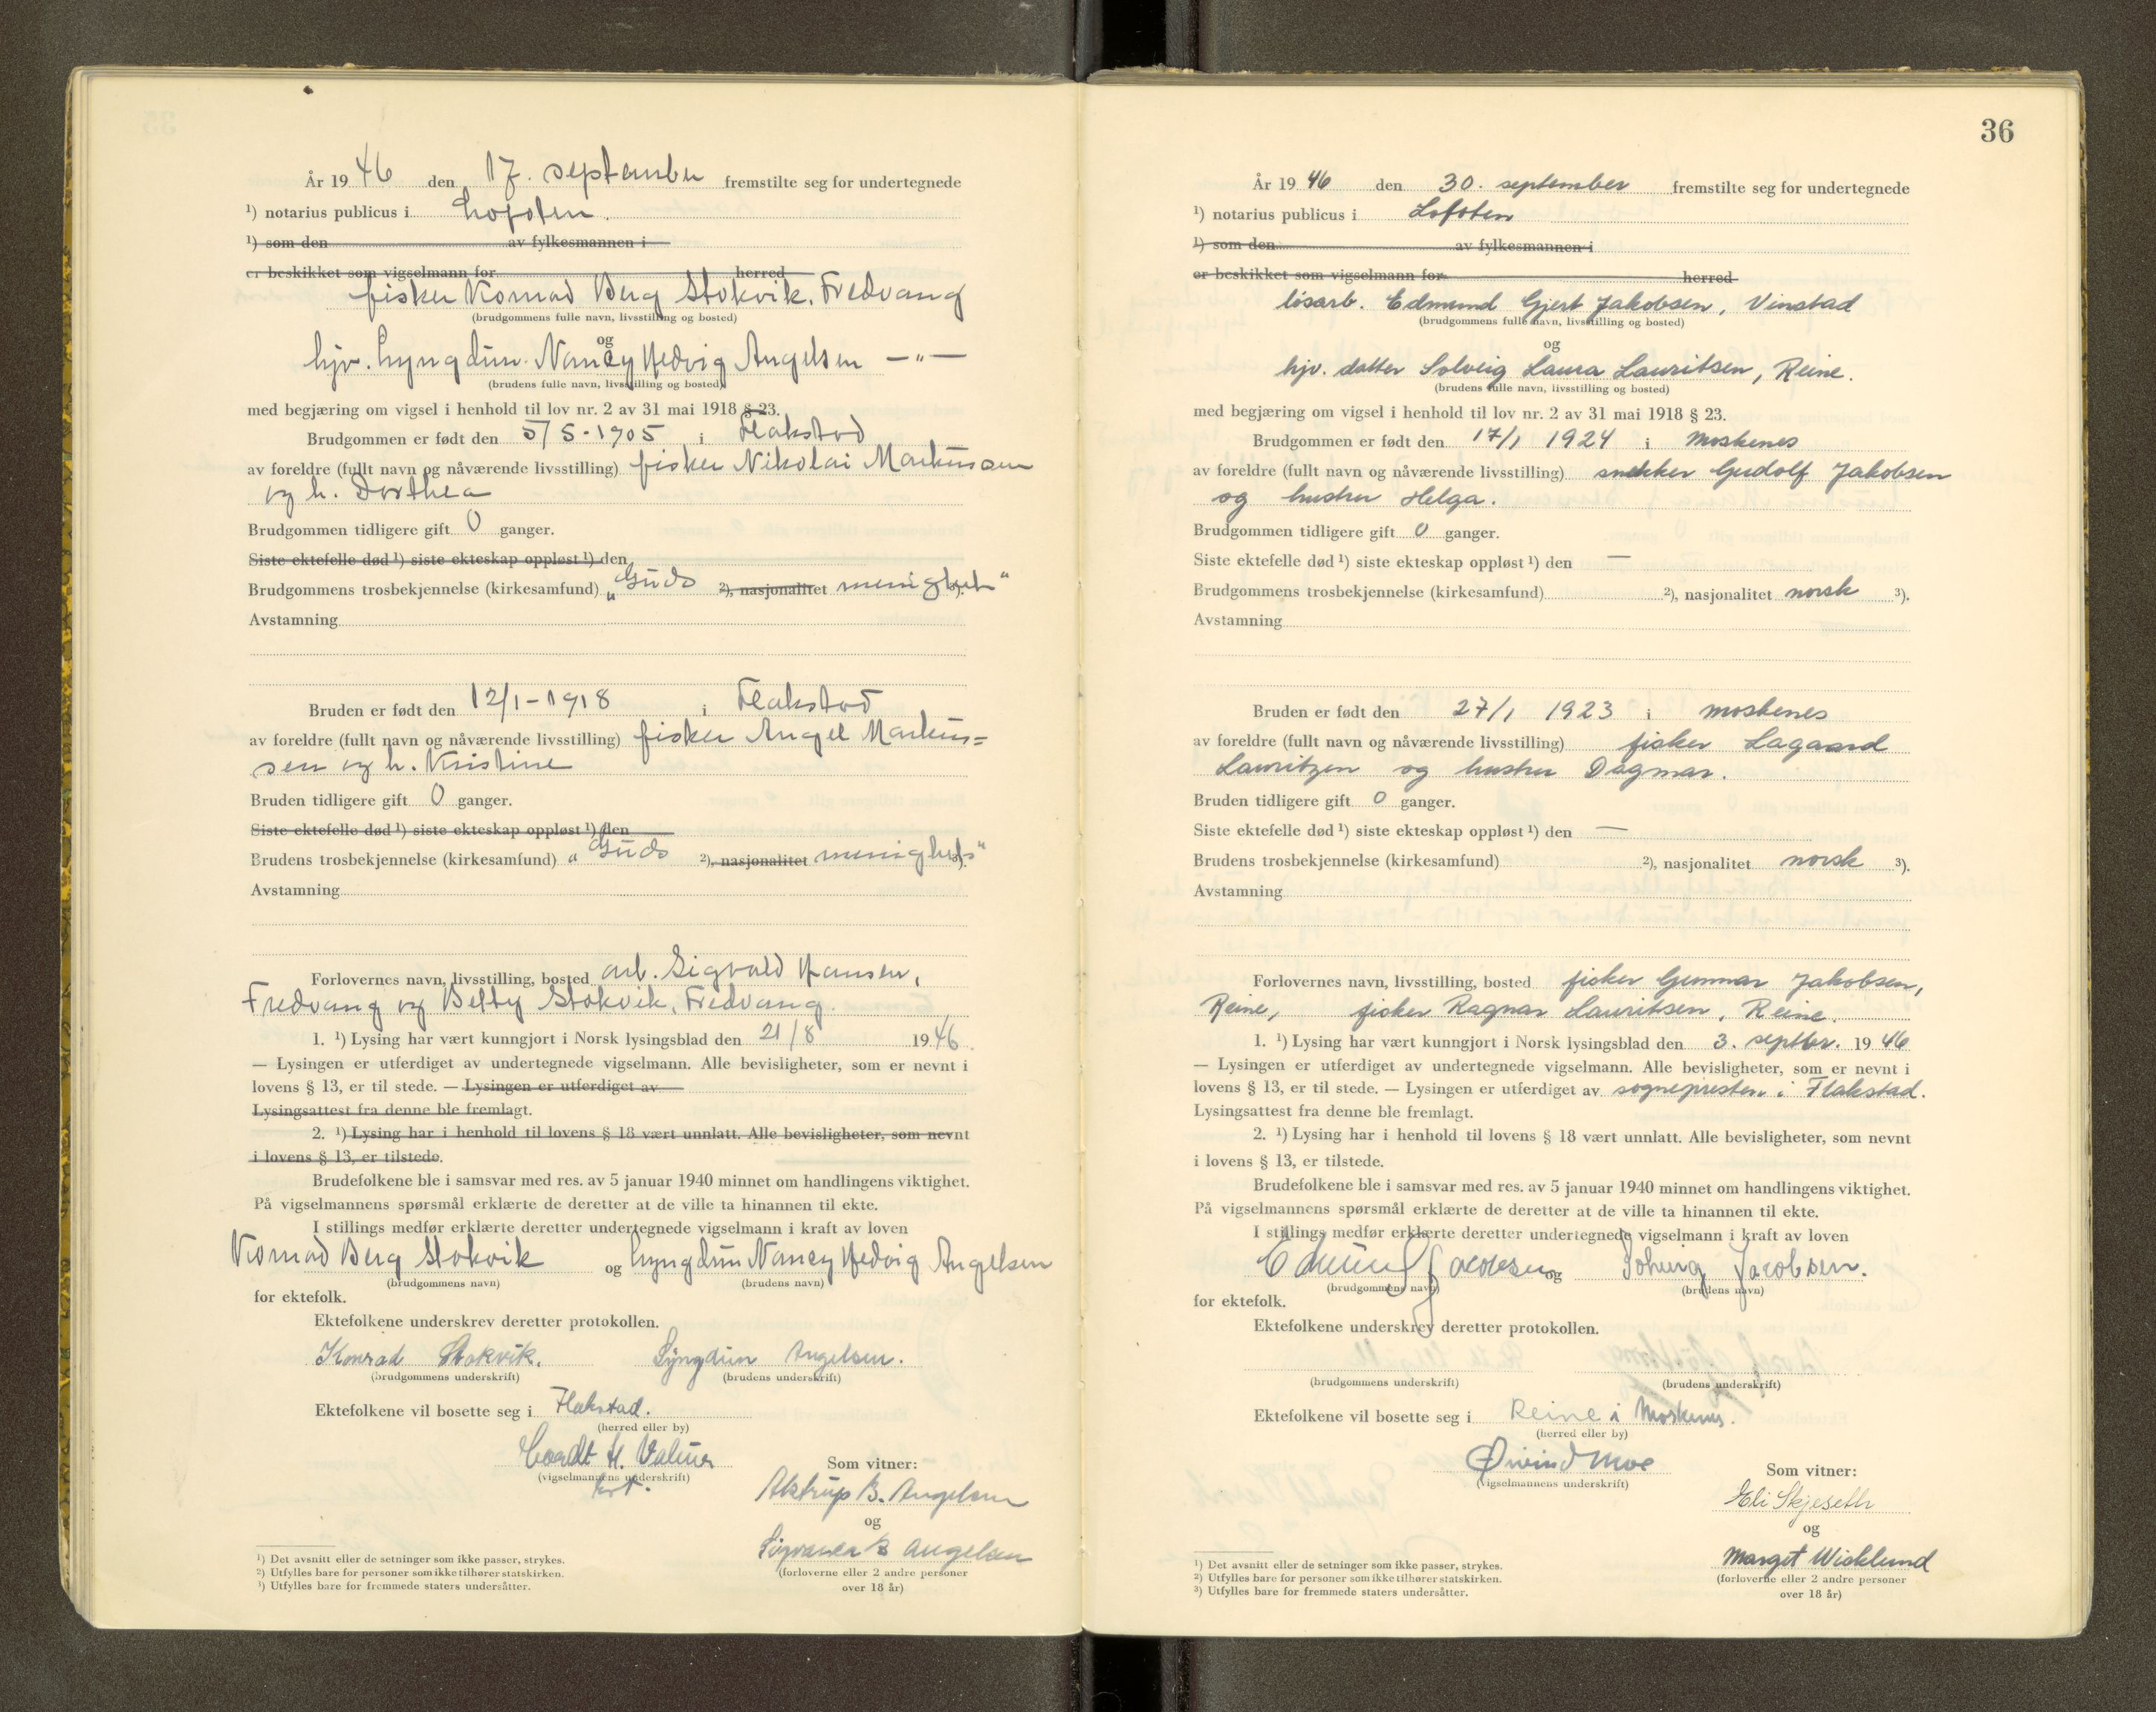 År 1946 den 17. september fremstilte seg for undertegnede
¹) notarius publicus i Lofoten.
¹) som den av fylkesmannen i
er beskikket som vigselmann for herred
fisker Konrad Berg Stokvik, Fredvang
(brudgommens fulle navn, livsstilling og bosted)
og
hjv. Lyngdun Nancy Hedvig Angelsen —„—
(brudens fulle navn, livsstilling og bosted)
med begjæring om vigsel i henhold til lov nr. 2 av 31 mai 1918 § 23.
Brudgommen er født den 5/5-1905 i Flakstad
av foreldre (fullt navn og nåværende livsstilling) fisker Nikolai Markussen
og h. Dorthea
Brudgommen tidligere gift 0 ganger.
Siste ektefelle død ¹) siste ekteskap oppløst ¹) den
Brudgommens trosbekjennelse (kirkesamfund) „Guds ²), nasjonalitet menighet“ ³).
Avstamning
Bruden er født den 12/1-1918 i Flakstad
av foreldre (fullt navn og nåværende livsstilling) fisker Angel Markus=
sen og h. Kristine
Bruden tidligere gift 0 ganger.
Siste ektefelle død ¹) siste ekteskap oppløst ¹) den
Brudens trosbekjennelse (kirkesamfund) „Guds ²), nasjonalitet menighet“ ³).
Avstamning
Forlovernes navn, livsstilling, bosted arb. Sigvald Hansen,
Fredvang og Betty Stokvik, Fredvang.
1. ¹) Lysing har vært kunngjort i Norsk lysingsblad den 21/8 1946
— Lysingen er utferdiget av undertegnede vigselmann. Alle bevisligheter, som er nevnt i
lovens § 13, er til stede. — Lysingen er utferdiget av
Lysingsattest fra denne ble fremlagt.
2. ¹) Lysing har i henhold til lovens § 18 vært unnlatt. Alle bevisligheter, som nevnt
i lovens § 13, er tilstede.
Brudefolkene ble i samsvar med res. av 5 januar 1940 minnet om handlingens viktighet.
På vigselmannens spørsmål erklærte de deretter at de ville ta hinannen til ekte.
I stillings medfør erklærte deretter undertegnede vigselmann i kraft av loven
Konrad Berg Stokvik og Lyngdun Nancy Hedvig Angelsen
(brudgommens navn) (brudens navn)
for ektefolk.
Ektefolkene underskrev deretter protokollen.
Konrad Stokvik. Lyngdun Angelsen.
(brudgommens underskrift) (brudens underskrift)
Ektefolkene vil bosette seg i Flakstad.
(herred eller by)
(vigselmannens underskrift)
Som vitner:
Alstrup B. Angelsen
og
B Angelsen
(forloverne eller 2 andre personer
over 18 år)
¹) Det avsnitt eller de setninger som ikke passer, strykes.
²) Utfylles bare for personer som ikke tilhører statskirken.
³) Utfylles bare for fremmede staters undersåtter.
36
År 1946 den 30. september fremstilte seg for undertegnede
¹) notarius publicus i Lofoten
¹) som den av fylkesmannen i
er beskikket som vigselmann for herred
løsarb. Edmund Gjert Jakobsen, Vinstad
(brudgommens fulle navn, livsstilling og bosted)
og
hjv. datter Solveig Laura Lauritsen, Reine.
(brudens fulle navn, livsstilling og bosted)
med begjæring om vigsel i henhold til lov nr. 2 av 31 mai 1918 § 23.
Brudgommen er født den 17/1 1924 i Moskenes
av foreldre (fullt navn og nåværende livsstilling) snekker Gudolf Jakobsen
og hustru Helga.
Brudgommen tidligere gift 0 ganger.
Siste ektefelle død ¹) siste ekteskap oppløst ¹) den —
Brudgommens trosbekjennelse (kirkesamfund) ²), nasjonalitet norsk ³).
Avstamning
Bruden er født den 27/1 1923 i Moskenes
av foreldre (fullt navn og nåværende livsstilling) fisker Lagaard
Lauritzen og hustru Dagmar.
Bruden tidligere gift 0 ganger.
Siste ektefelle død ¹) siste ekteskap oppløst ¹) den —
Brudens trosbekjennelse (kirkesamfund) ²), nasjonalitet norsk ³).
Avstamning
Forlovernes navn, livsstilling, bosted fisker Gunnar Jakobsen,
Reine, fisker Ragnar Lauritsen, Reine.
1. ¹) Lysing har vært kunngjort i Norsk lysingsblad den 3. septbr. 1946
— Lysingen er utferdiget av undertegnede vigselmann. Alle bevisligheter, som er nevnt i
lovens § 13, er til stede. — Lysingen er utferdiget av sognepresten i Flakstad.
Lysingsattest fra denne ble fremlagt.
2. ¹) Lysing har i henhold til lovens § 18 vært unnlatt. Alle bevisligheter, som nevnt
i lovens § 13, er tilstede.
Brudefolkene ble i samsvar med res. av 5 januar 1940 minnet om handlingens viktighet.
På vigselmannens spørsmål erklærte de deretter at de ville ta hinannen til ekte.
I stillings medfør erklærte deretter undertegnede vigselmann i kraft av loven
Edmund Jacobsen og Jacobsen.
(brudgommens navn) (brudens navn)
for ektefolk.
Ektefolkene underskrev deretter protokollen.
(brudgommens underskrift) (brudens underskrift)
Ektefolkene vil bosette seg i Reine i Moskenes.
(herred eller by)
Øivind Moe
(vigselmannens underskrift)
Som vitner:
Eli Skjeseth
og
Margit Wicklund
(forloverne eller 2 andre personer
over 18 år)
¹) Det avsnitt eller de setninger som ikke passer, strykes.
²) Utfylles bare for personer som ikke tilhører statskirken.
³) Utfylles bare for fremmede staters undersåtter.